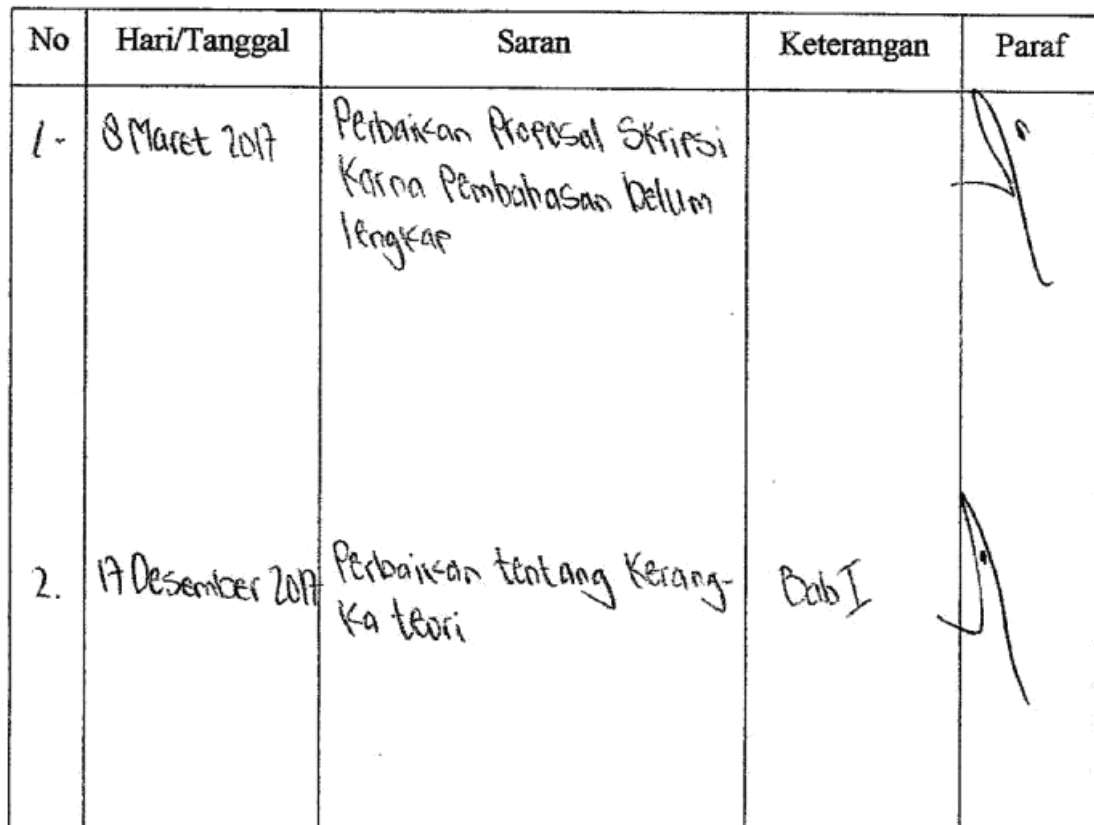 No Hari/Tanggal Saran Keterangan Paraf
1- 8 Maret 2017 Perbaikan Proposal Skripsi
Karna Pembahasan belum
lengkap
2. 17 Desember 2017 Perbaikan tentang Kerang-
ka teori Bab I